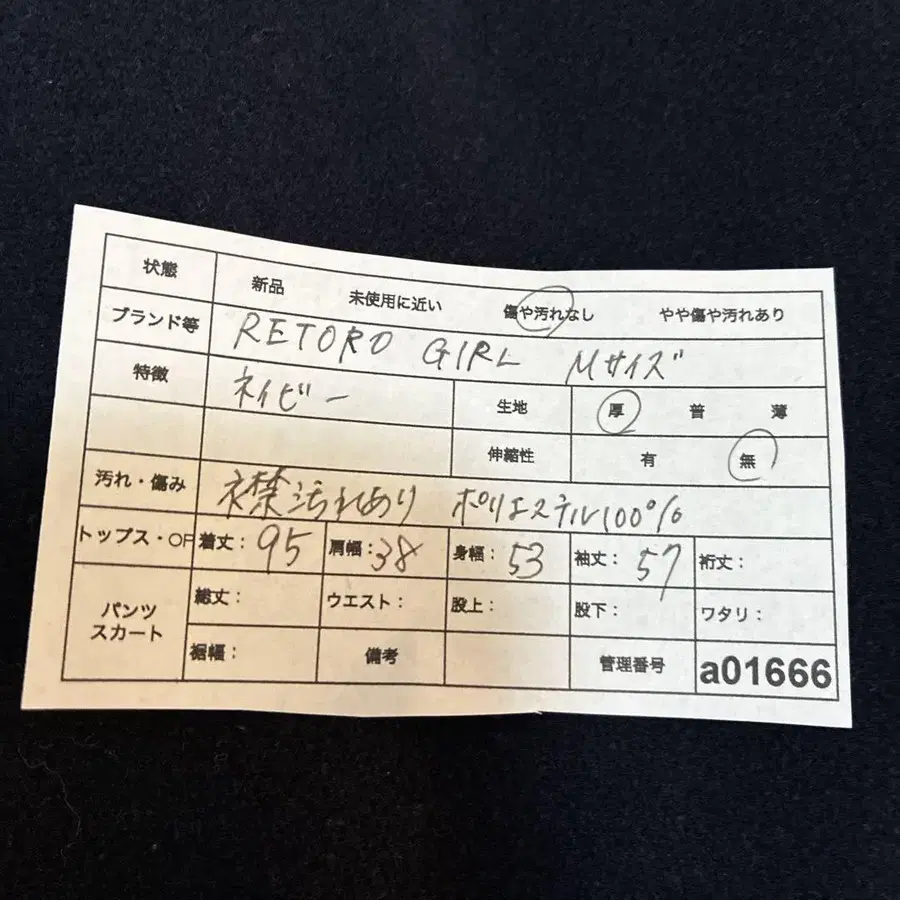 状態 新品 未使用に近い 傷や汚れなし やや傷や汚れあり
ブランド等 RETORO GIRL Mサイズ
特徴 ネイビー 生地 厚 普 薄
伸縮性 有 無
汚れ・傷み 襟汚れあり ポリエステル100%
トップス・OP 着丈: 95 肩幅: 38 身幅: 53 袖丈: 57 裄丈:
パンツ スカート 総丈: ウエスト: 股上: 股下: ワタリ:
裾幅: 備考 管理番号 a01666